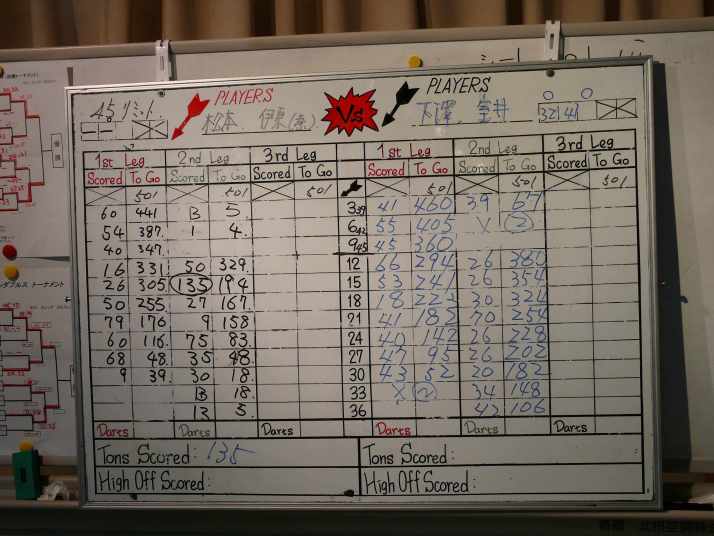 45リミット PLAYERS Vs PLAYERS
松本、伊東 下澤、室井 32 41
1st Leg 2nd Leg 3rd Leg 1st Leg 2nd Leg 3rd Leg
Scored To Go Scored To Go Scored To Go Scored To Go Scored To Go Scored To Go
501 501 501 501 501 501
60 441 B 5 3 39 41 460 39 67
54 387 1 4 6 42 55 405 X 2
40 347 9 45 45 360
16 331 50 329 12 66 294 26 380
26 305 135 194 15 53 241 26 354
50 255 27 167 18 18 223 30 324
79 176 9 158 21 41 182 70 254
60 116 75 83 24 40 142 26 228
68 48 35 48 27 47 95 26 202
9 39 30 18 30 43 52 20 182
B 18 33 X 2 34 148
13 5 36 42 106
Darts Darts Darts Darts Darts Darts
Tons Scored: 135 Tons Scored:
High Off Scored: High Off Scored: